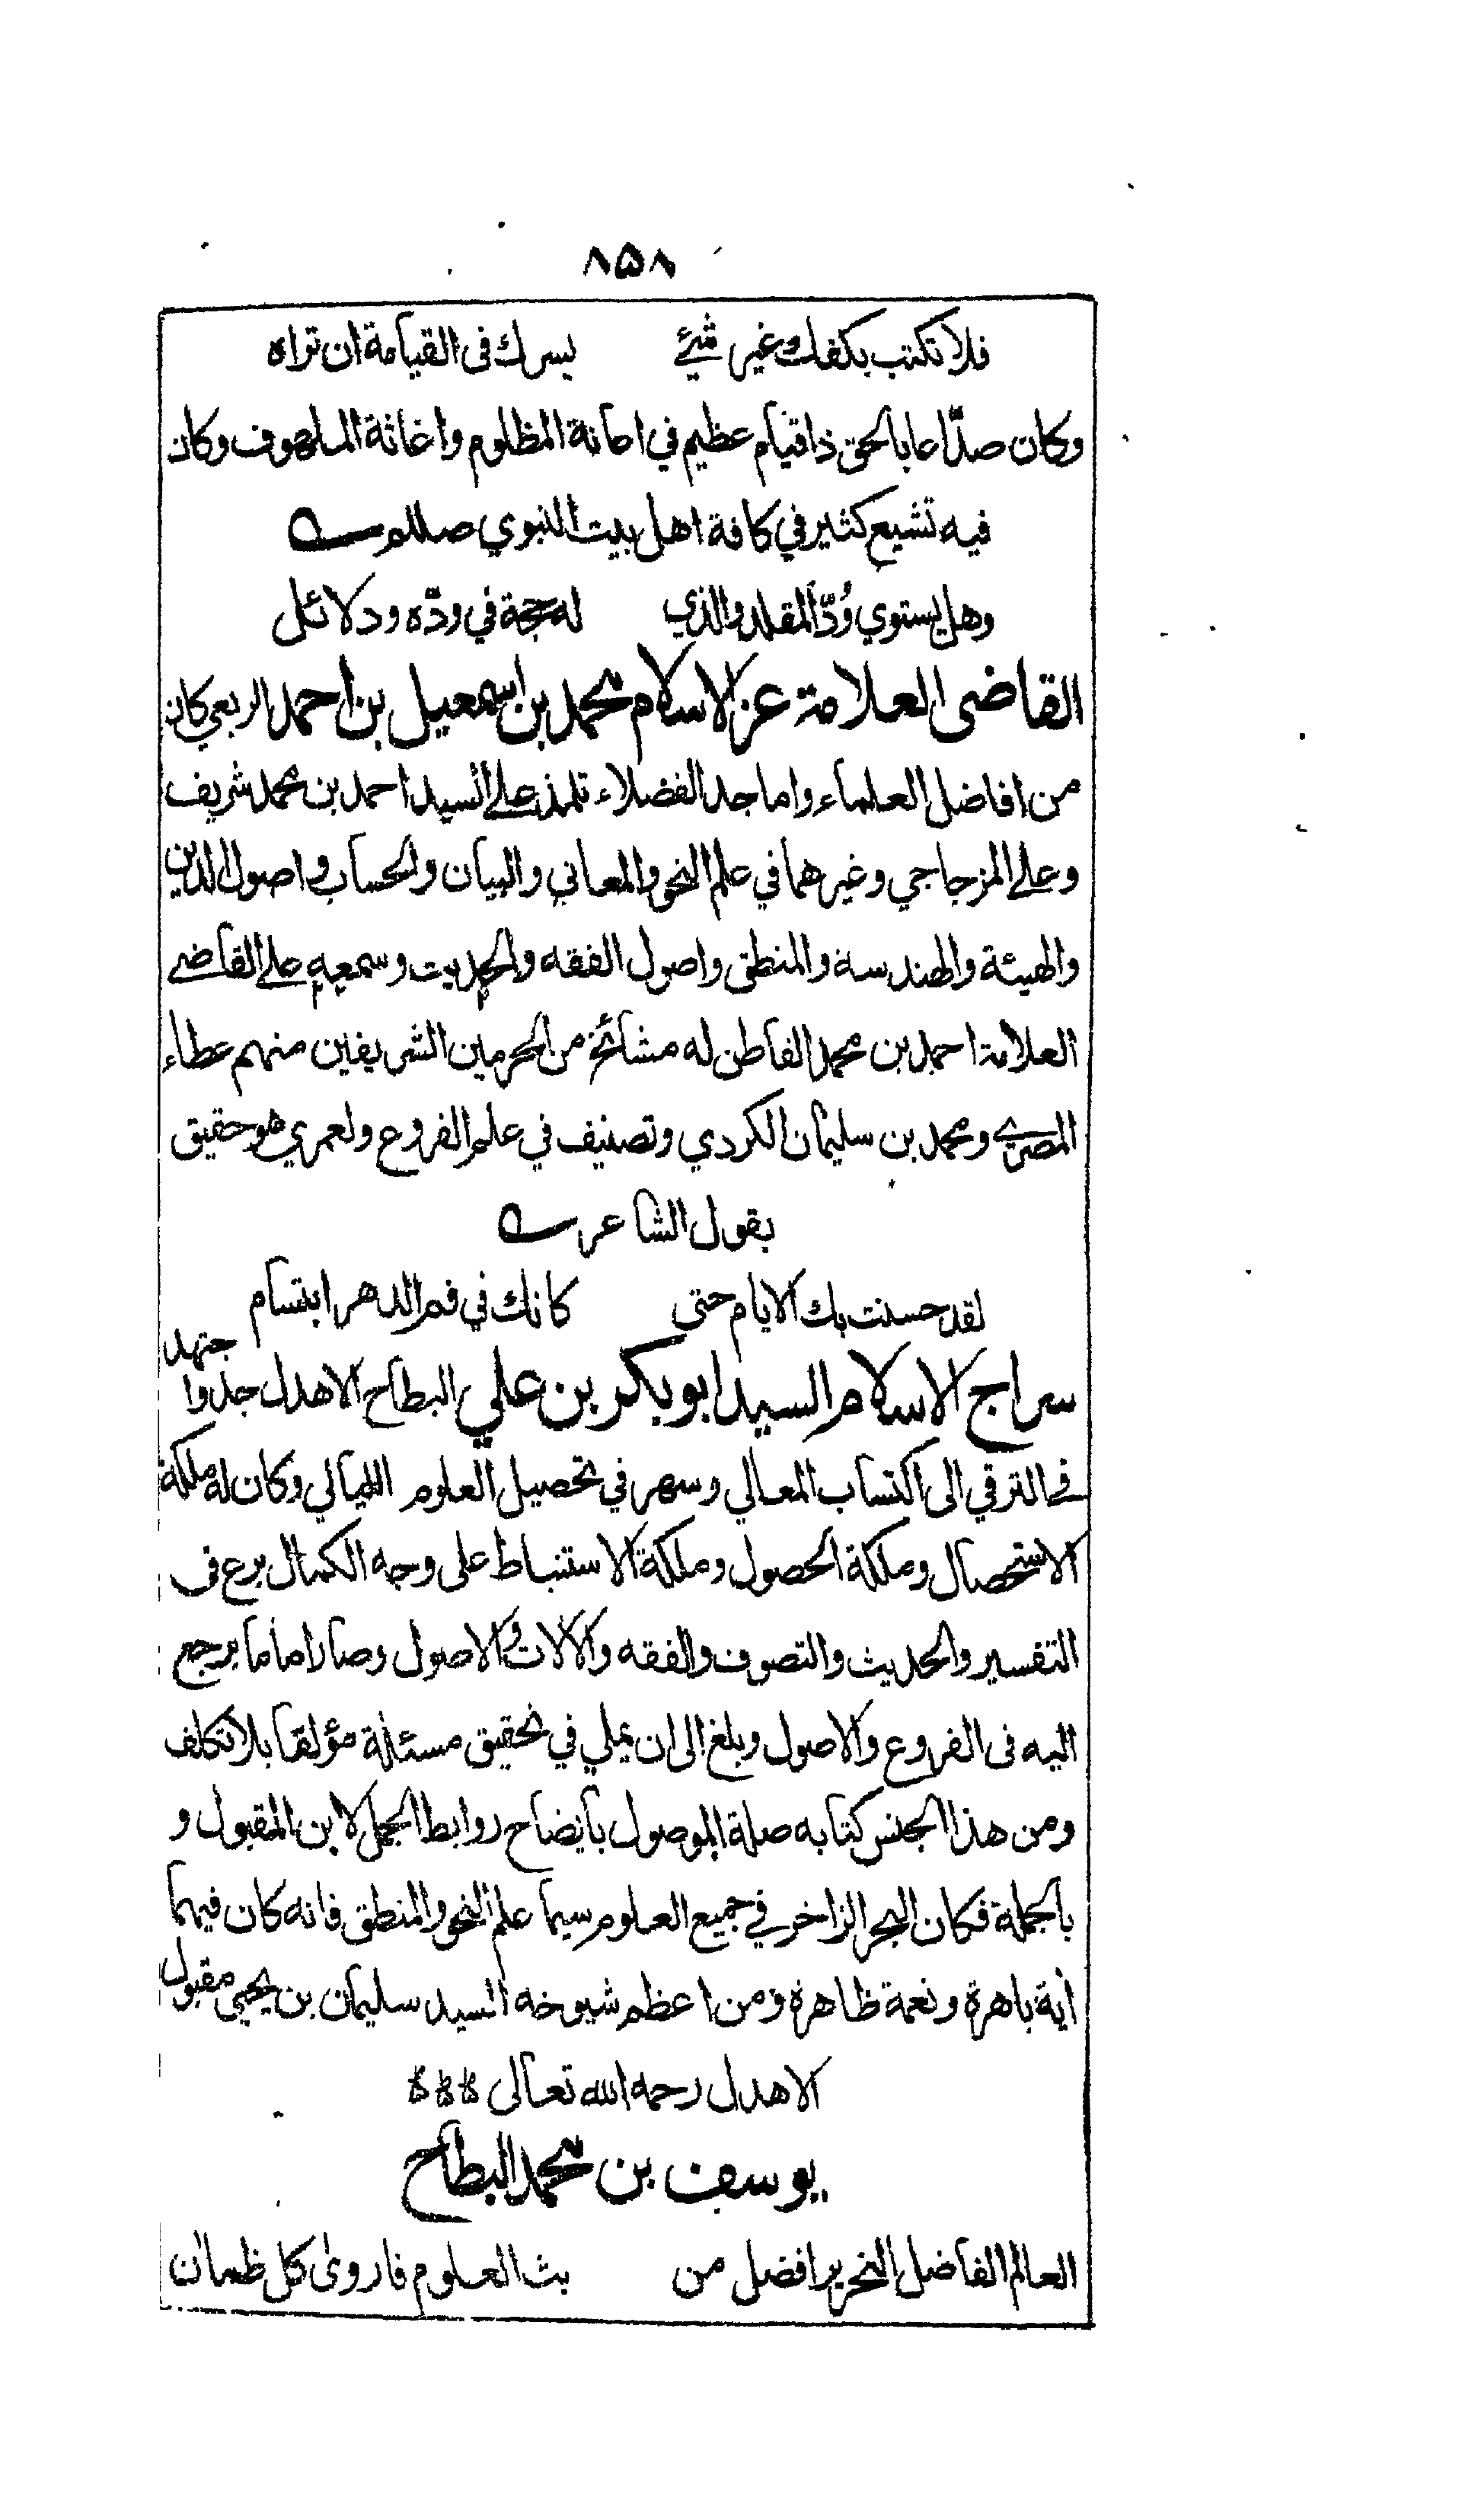 ۸۵۸
فلا تكتب بكفك غير شيئ يسرك فى القيامة ان تراه
وكان صدّاعا بالحق ذا قيام عظيم في اعانة المظلوم واغاثة الملهوف وكان
فيه تشيع كثير في كافة اهل بيت النبوي صللم
وهل يستوي وُدّ المقلد والذي له حجة في ودّه ودلائل
القاضى العلامة عز الاسلام محمد بن اسمعيل بن احمد الربعي كان
من افاضل العلماء واماجد الفضلاء تلمذ على السيد احمد بن محمد شريف
وعلى المزجاجي وغيرهما في علم النحو والمعاني والبيان والحساب واصول الدين
والهيئة والهندسة والمنطق واصول الفقه والحديث وسمعه على القاضي
العلامة احمد بن محمد الفاطن له مشائخ من الحرمين الشريفين منهم عطاء
المصري ومحمد بن سليمان الكردي وتصنيف في علم الفروع ولعمري هو حقيق
بقول الشاعر
لقد حسنت بك الايام حتى كانك في فم الدهر ابتسام
سراج الاسلام السيد ابو بكر بن علي البطاح الاهدل جد واجتهد
في الترقي الى اكتساب المعالي وسهر في تحصيل العلوم الليالي وكان له ملكة
الاستحصال وملكة الحصول وملكة الاستنباط على وجه الكمال برع فى
التفسير والحديث والتصوف والفقه والآلات والاصول وصار اماما يرجع
اليه فى الفروع والاصول وبلغ الى ان يملي في تحقيق مسئلة مؤلفا بلا تكلف
ومن هذا الجنس كتابه صلة الموصول بايضاح روابط الجمل لابن المقبول و
بالجملة فكان البحر الزاخر في جميع العلوم سيما علم النحو والمنطق فانه كان فيهما
أية باهرة ونعمة ظاهرة ومن اعظم شيوخه السيد سليمان بن يحيى مقبول
الاهدل رحمه الله تعالى
يوسف بن محمد البطاح
العالم الفاضل النحرير افضل من بث العلوم فاروى كل ظمان